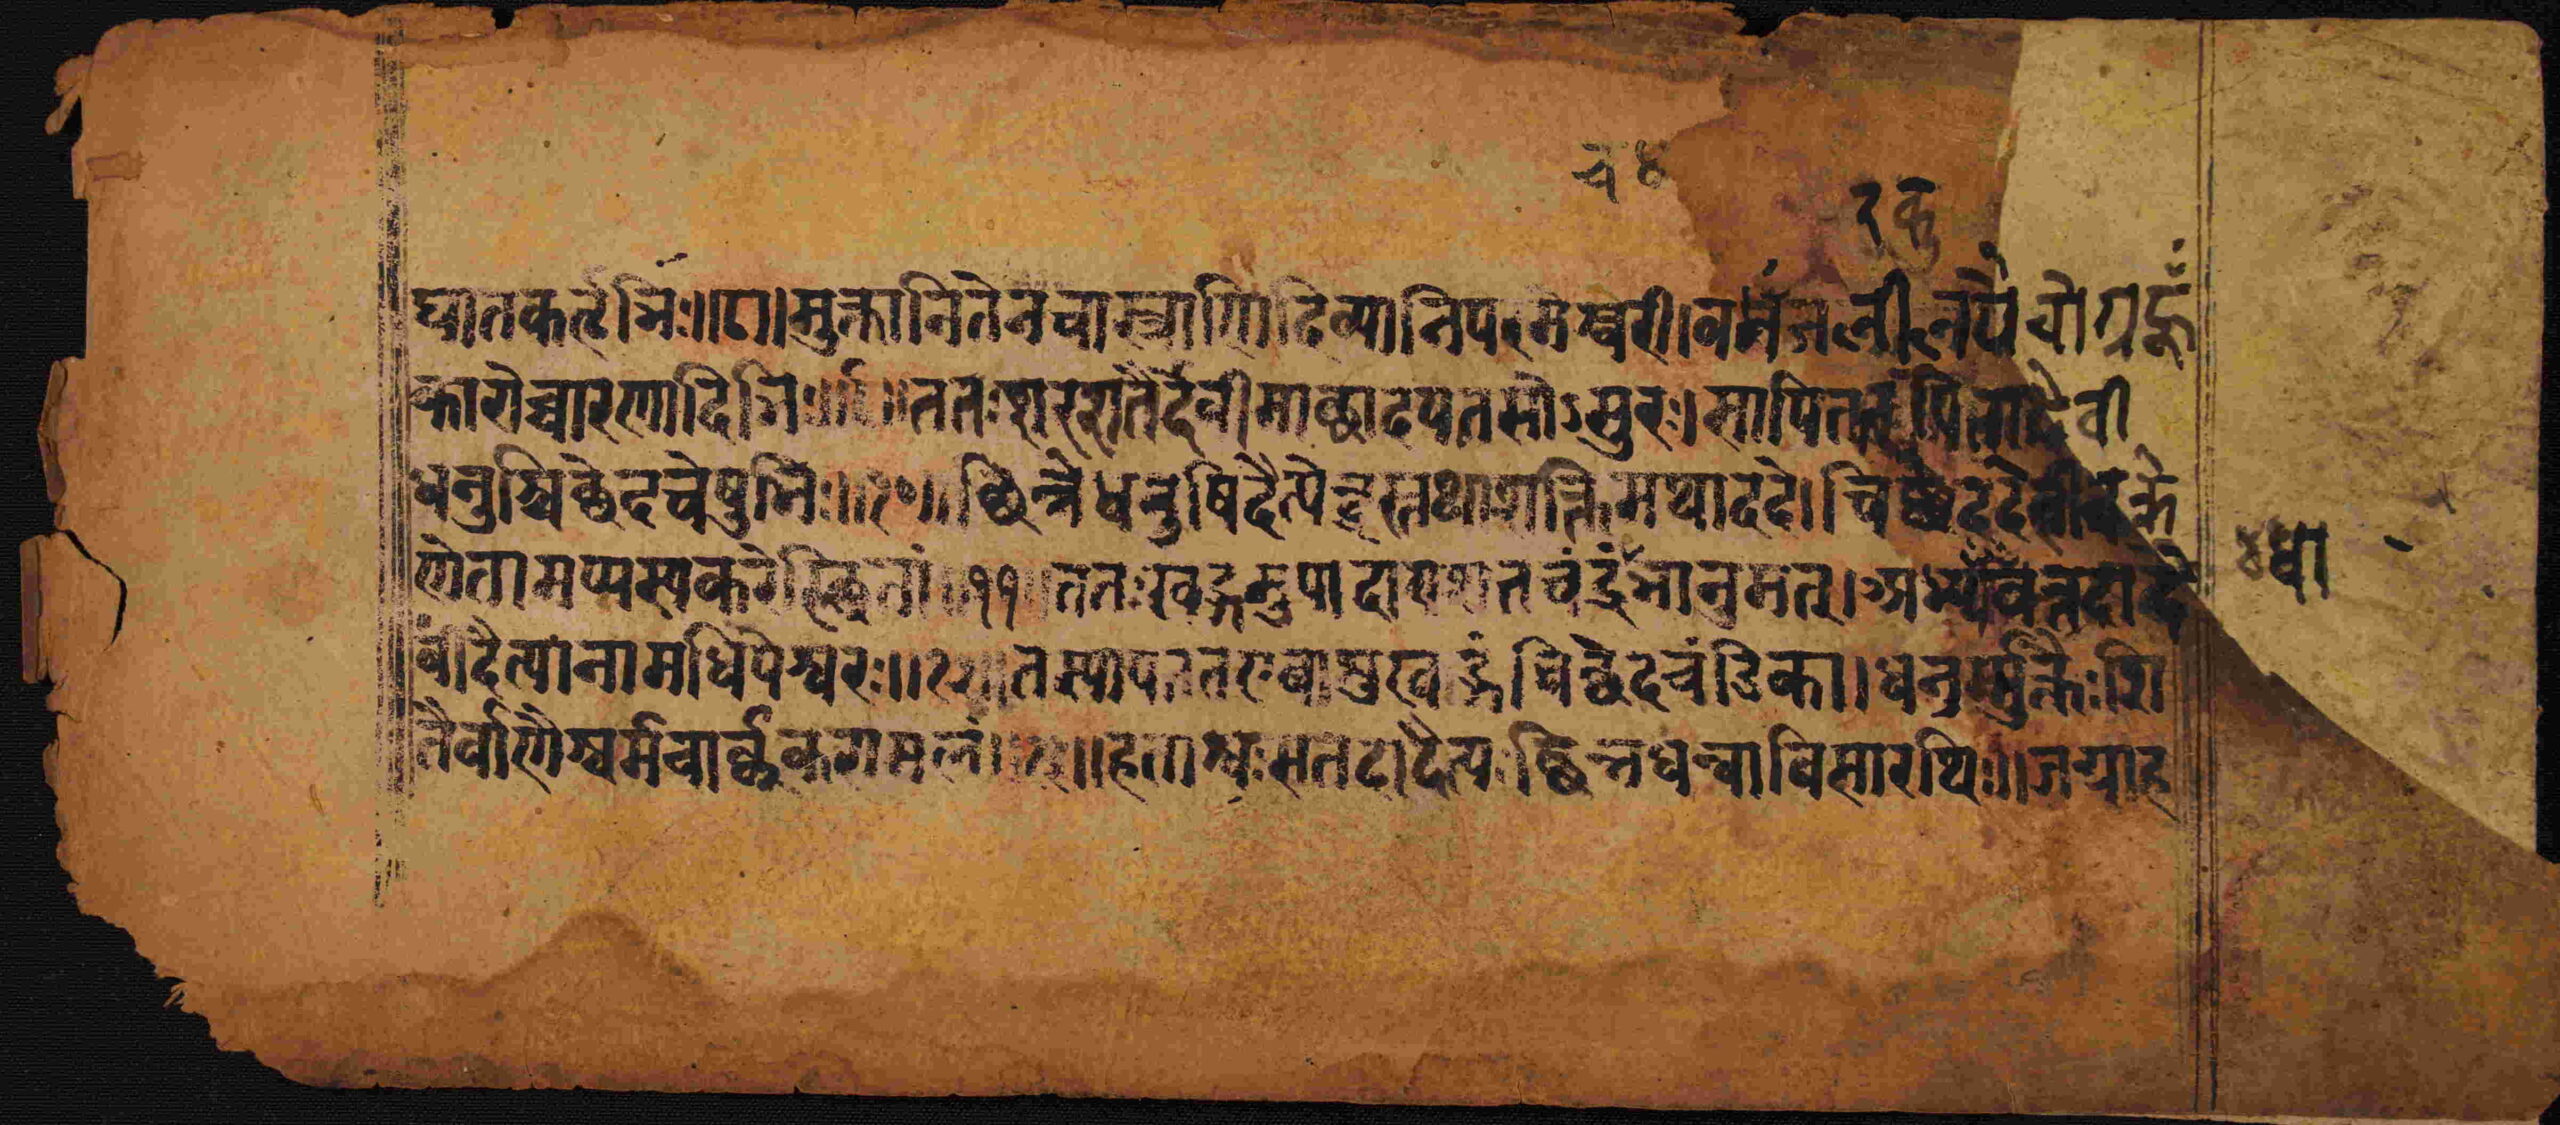 च ४
दकु
घातकर्तृभिः॥८॥मुक्तानितेनचास्त्राणिदिव्यानिपरमेश्वरी।बभंजलीलयैवोग्रहूँ
कारोच्चारणादिभिः॥९॥ततःशरशतैर्द्देवीमाच्छादयतसोऽसुरः।सापितत्कुपितादेवी
धनुश्चिच्छेदचेषुभिः॥१०॥च्छिन्नेधनुषिदैत्येन्द्रस्तथाशक्तिमथाददे।चिच्छेददेवीचक्रे
णेतामप्यस्यकरेस्थितां॥११॥ततःखड्गमुपादायशतचंद्रंभानुमत्।अभ्यधावत्तदादे
वींदैत्यानामधिपेश्वरः॥१२॥तस्यापततएवाशुखड्गंचिच्छेदचंडिका।धनुर्मुक्तैःशि
तैर्वाणैश्चर्मचार्क्ककरामलं॥१३॥हताश्वःसतदादैत्यःच्छिन्नधन्वाविसारथिः॥जग्राह
४धा